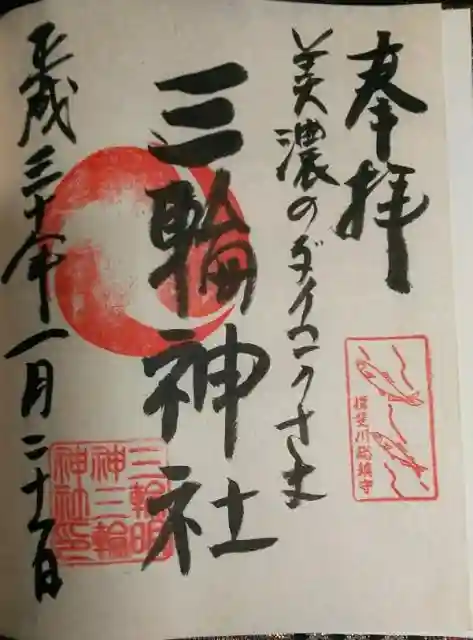 奉拝
美濃のダイコクさま
三輪神社
平成三十年一月二十一日
揖斐川総鎮守
三輪明
神三輪
神社印